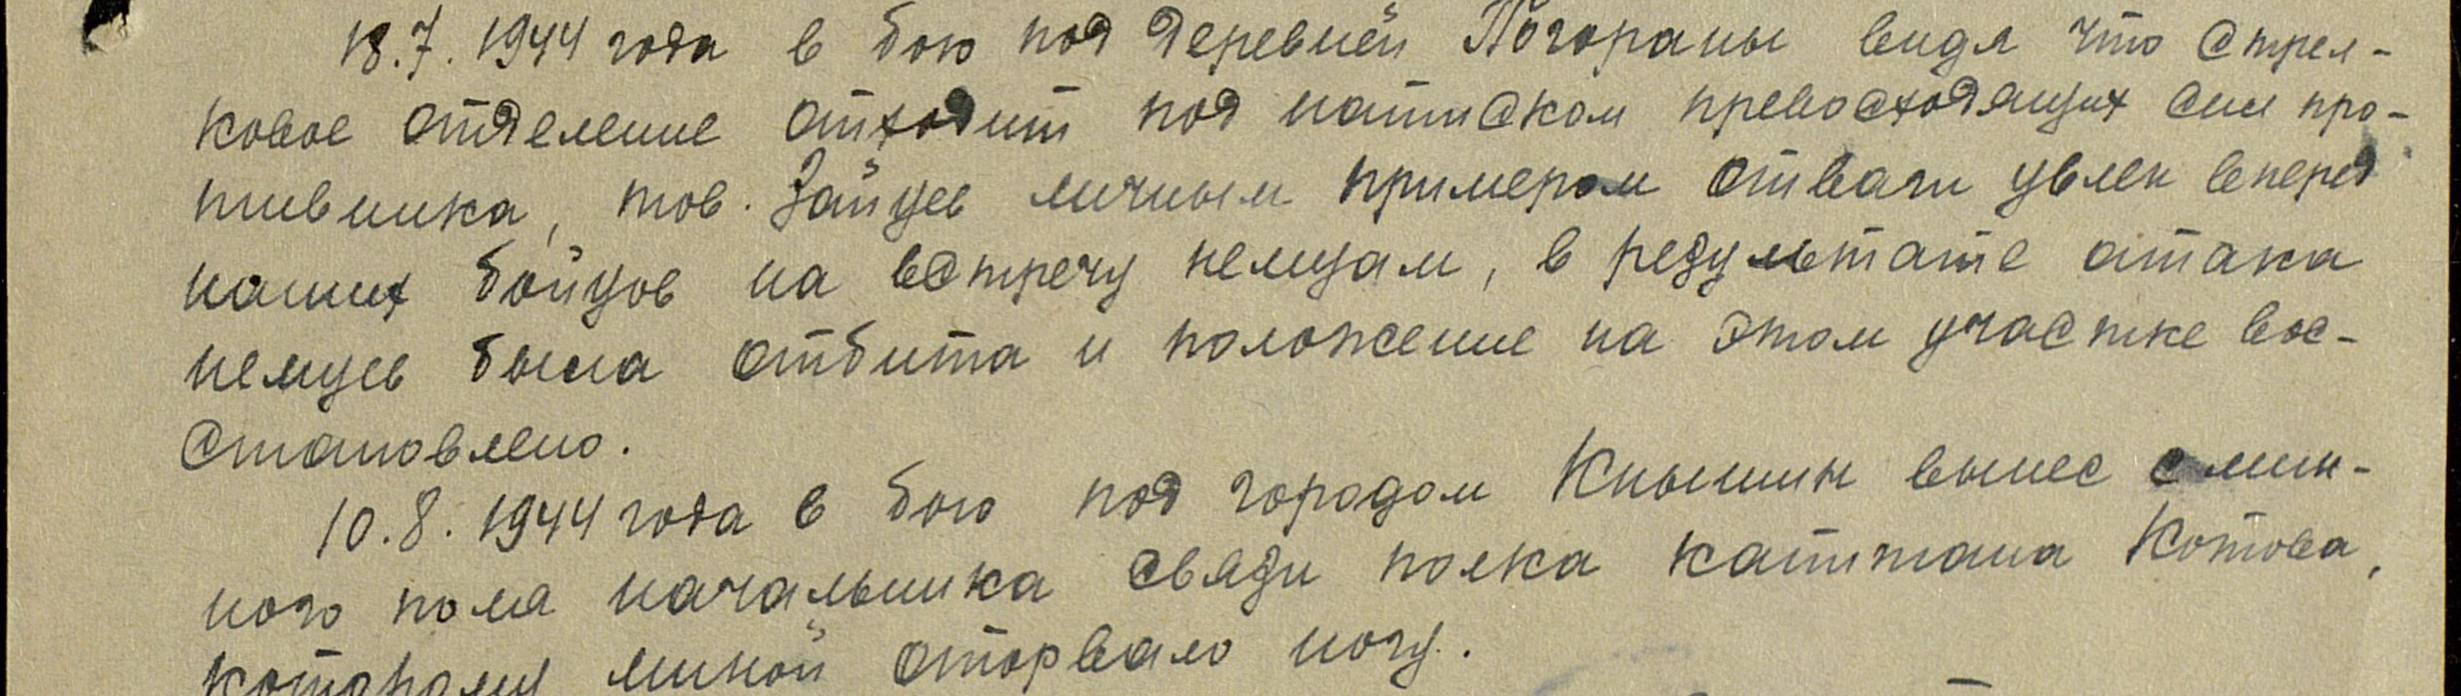 18.7.1944 года в бою под деревней Погораны видя что стрел-
ковое отделение отходит под натиском превосходящих сил про-
тивника, тов. Зайцев личным примером отваги увлек вперед
наших бойцов на встречу немцам, в результате атака
немцев была отбита и положение на этом участке вос-
становлено.
10.8.1944 года в бою под городом Кнышин вынес с мин-
ного поля начальника связи полка капитана Котова,
которому миной оторвало ногу.